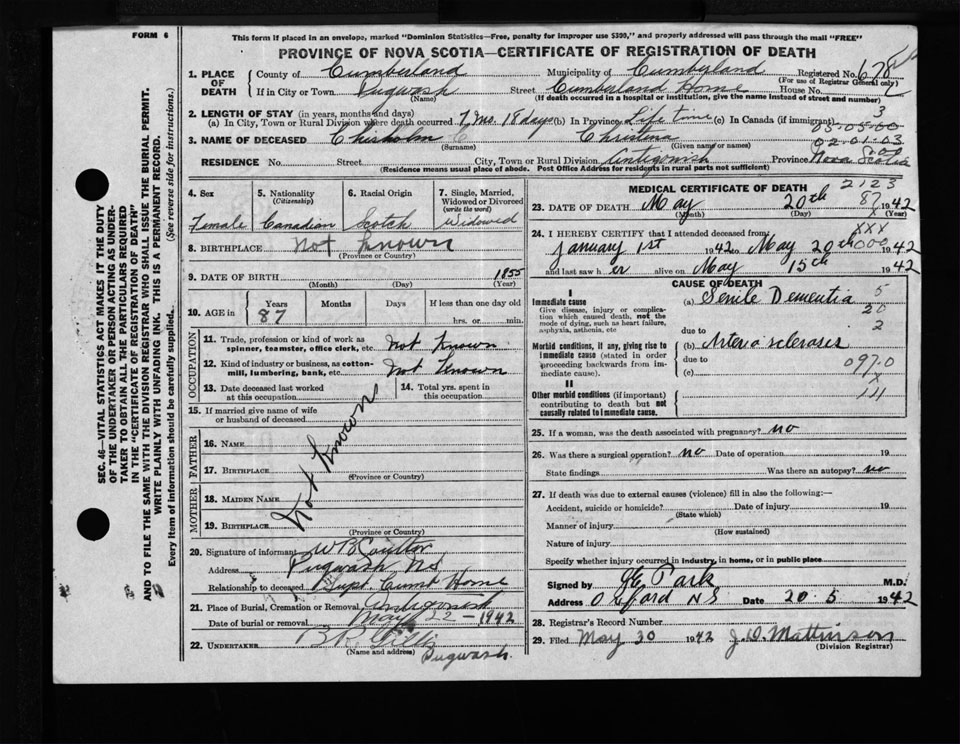 FORM 6
This form if placed in an envelope, marked "Dominion Statistics—Free, penalty for improper use $300," and properly addressed will pass through the mail "FREE"
PROVINCE OF NOVA SCOTIA—CERTIFICATE OF REGISTRATION OF DEATH
SEC. 46—VITAL STATISTICS ACT MAKES IT THE DUTY
OF THE UNDERTAKER OR PERSON ACTING AS UNDER-
TAKER TO OBTAIN ALL THE PARTICULARS REQUIRED
IN THE "CERTIFICATE OF REGISTRATION OF DEATH"
AND TO FILE THE SAME WITH THE DIVISION REGISTRAR WHO SHALL ISSUE THE BURIAL PERMIT.
WRITE PLAINLY WITH UNFADING INK. THIS IS A PERMANENT RECORD.
Every item of information should be carefully supplied. (See reverse side for instructions.)
1. PLACE OF DEATH
County of Cumberland Municipality of Cumberland Registered No. 678
(For use of Registrar General only)
If in City or Town Pugwash Street Cumberland Home House No.
(Name) (If death occurred in a hospital or institution, give the name instead of street and number)
2. LENGTH OF STAY (in years, months and days)
(a) In City, Town or Rural Division where death occurred 7 mo. 18 days (b) In Province Life time (c) In Canada (if immigrant)
3
05-05-00
3. NAME OF DECEASED Chisholm C Christina 02-01-03
(Surname) (Given name or names)
RESIDENCE No. Street City, Town or Rural Division Antigonish Province Nova Scotia
(Residence means usual place of abode. Post Office Address for residents in rural parts not sufficient)
4. Sex 5. Nationality (Citizenship) 6. Racial Origin 7. Single, Married, Widowed or Divorced (write the word)
Female Canadian Scotch Widowed
8. BIRTHPLACE Not Known
(Province or Country)
9. DATE OF BIRTH 1855
(Month) (Day) (Year)
10. AGE in Years Months Days If less than one day old
87 hrs. or min.
OCCUPATION
11. Trade, profession or kind of work as spinner, teamster, office clerk, etc. Not Known
12. Kind of industry or business, as cotton-mill, lumbering, bank, etc. Not Known
13. Date deceased last worked at this occupation
14. Total yrs. spent in this occupation
15. If married give name of wife or husband of deceased
FATHER
16. NAME
17. BIRTHPLACE
(Province or Country)
MOTHER
18. MAIDEN NAME
19. BIRTHPLACE
(Province or Country)
Not Known
20. Signature of informant W B Coulter
Address Pugwash N.S
Relationship to deceased Supt. Cumb Home
21. Place of Burial, Cremation or Removal Antigonish
Date of burial or removal May 22 - 1942
22. UNDERTAKER
(Name and address) Pugwash.
MEDICAL CERTIFICATE OF DEATH 2123
23. DATE OF DEATH May 20th 1942
87
(Month) (Day) x (Year)
24. I HEREBY CERTIFY that I attended deceased from: xxx
January 1st 1942 to May 20th 1942
000
and last saw her alive on May 15th 1942
CAUSE OF DEATH
I
Immediate cause (a) Senile Dementia 5
Give disease, injury or complication which caused death, not the mode of dying, such as heart failure, asphyxia, asthenia, etc
20
2
due to
Morbid conditions, if any, giving rise to immediate cause (stated in order proceeding backwards from immediate cause).
(b) Arterio sclerosis
due to
0970
(c)
x
II
111
Other morbid conditions (if important) contributing to death but not causally related to immediate cause.
25. If a woman, was the death associated with pregnancy? no
26. Was there a surgical operation? no Date of operation 19
State findings Was there an autopsy? no
27. If death was due to external causes (violence) fill in also the following:—
Accident, suicide or homicide? Date of injury 19
(State which)
Manner of injury
(How sustained)
Nature of injury
Specify whether injury occurred in industry, in home, or in public place
Signed by J E Park M.D.
Address Oxford NS Date 20·5 1942
28. Registrar's Record Number
29. Filed May 30 1942 J. D. Mattinson
(Division Registrar)